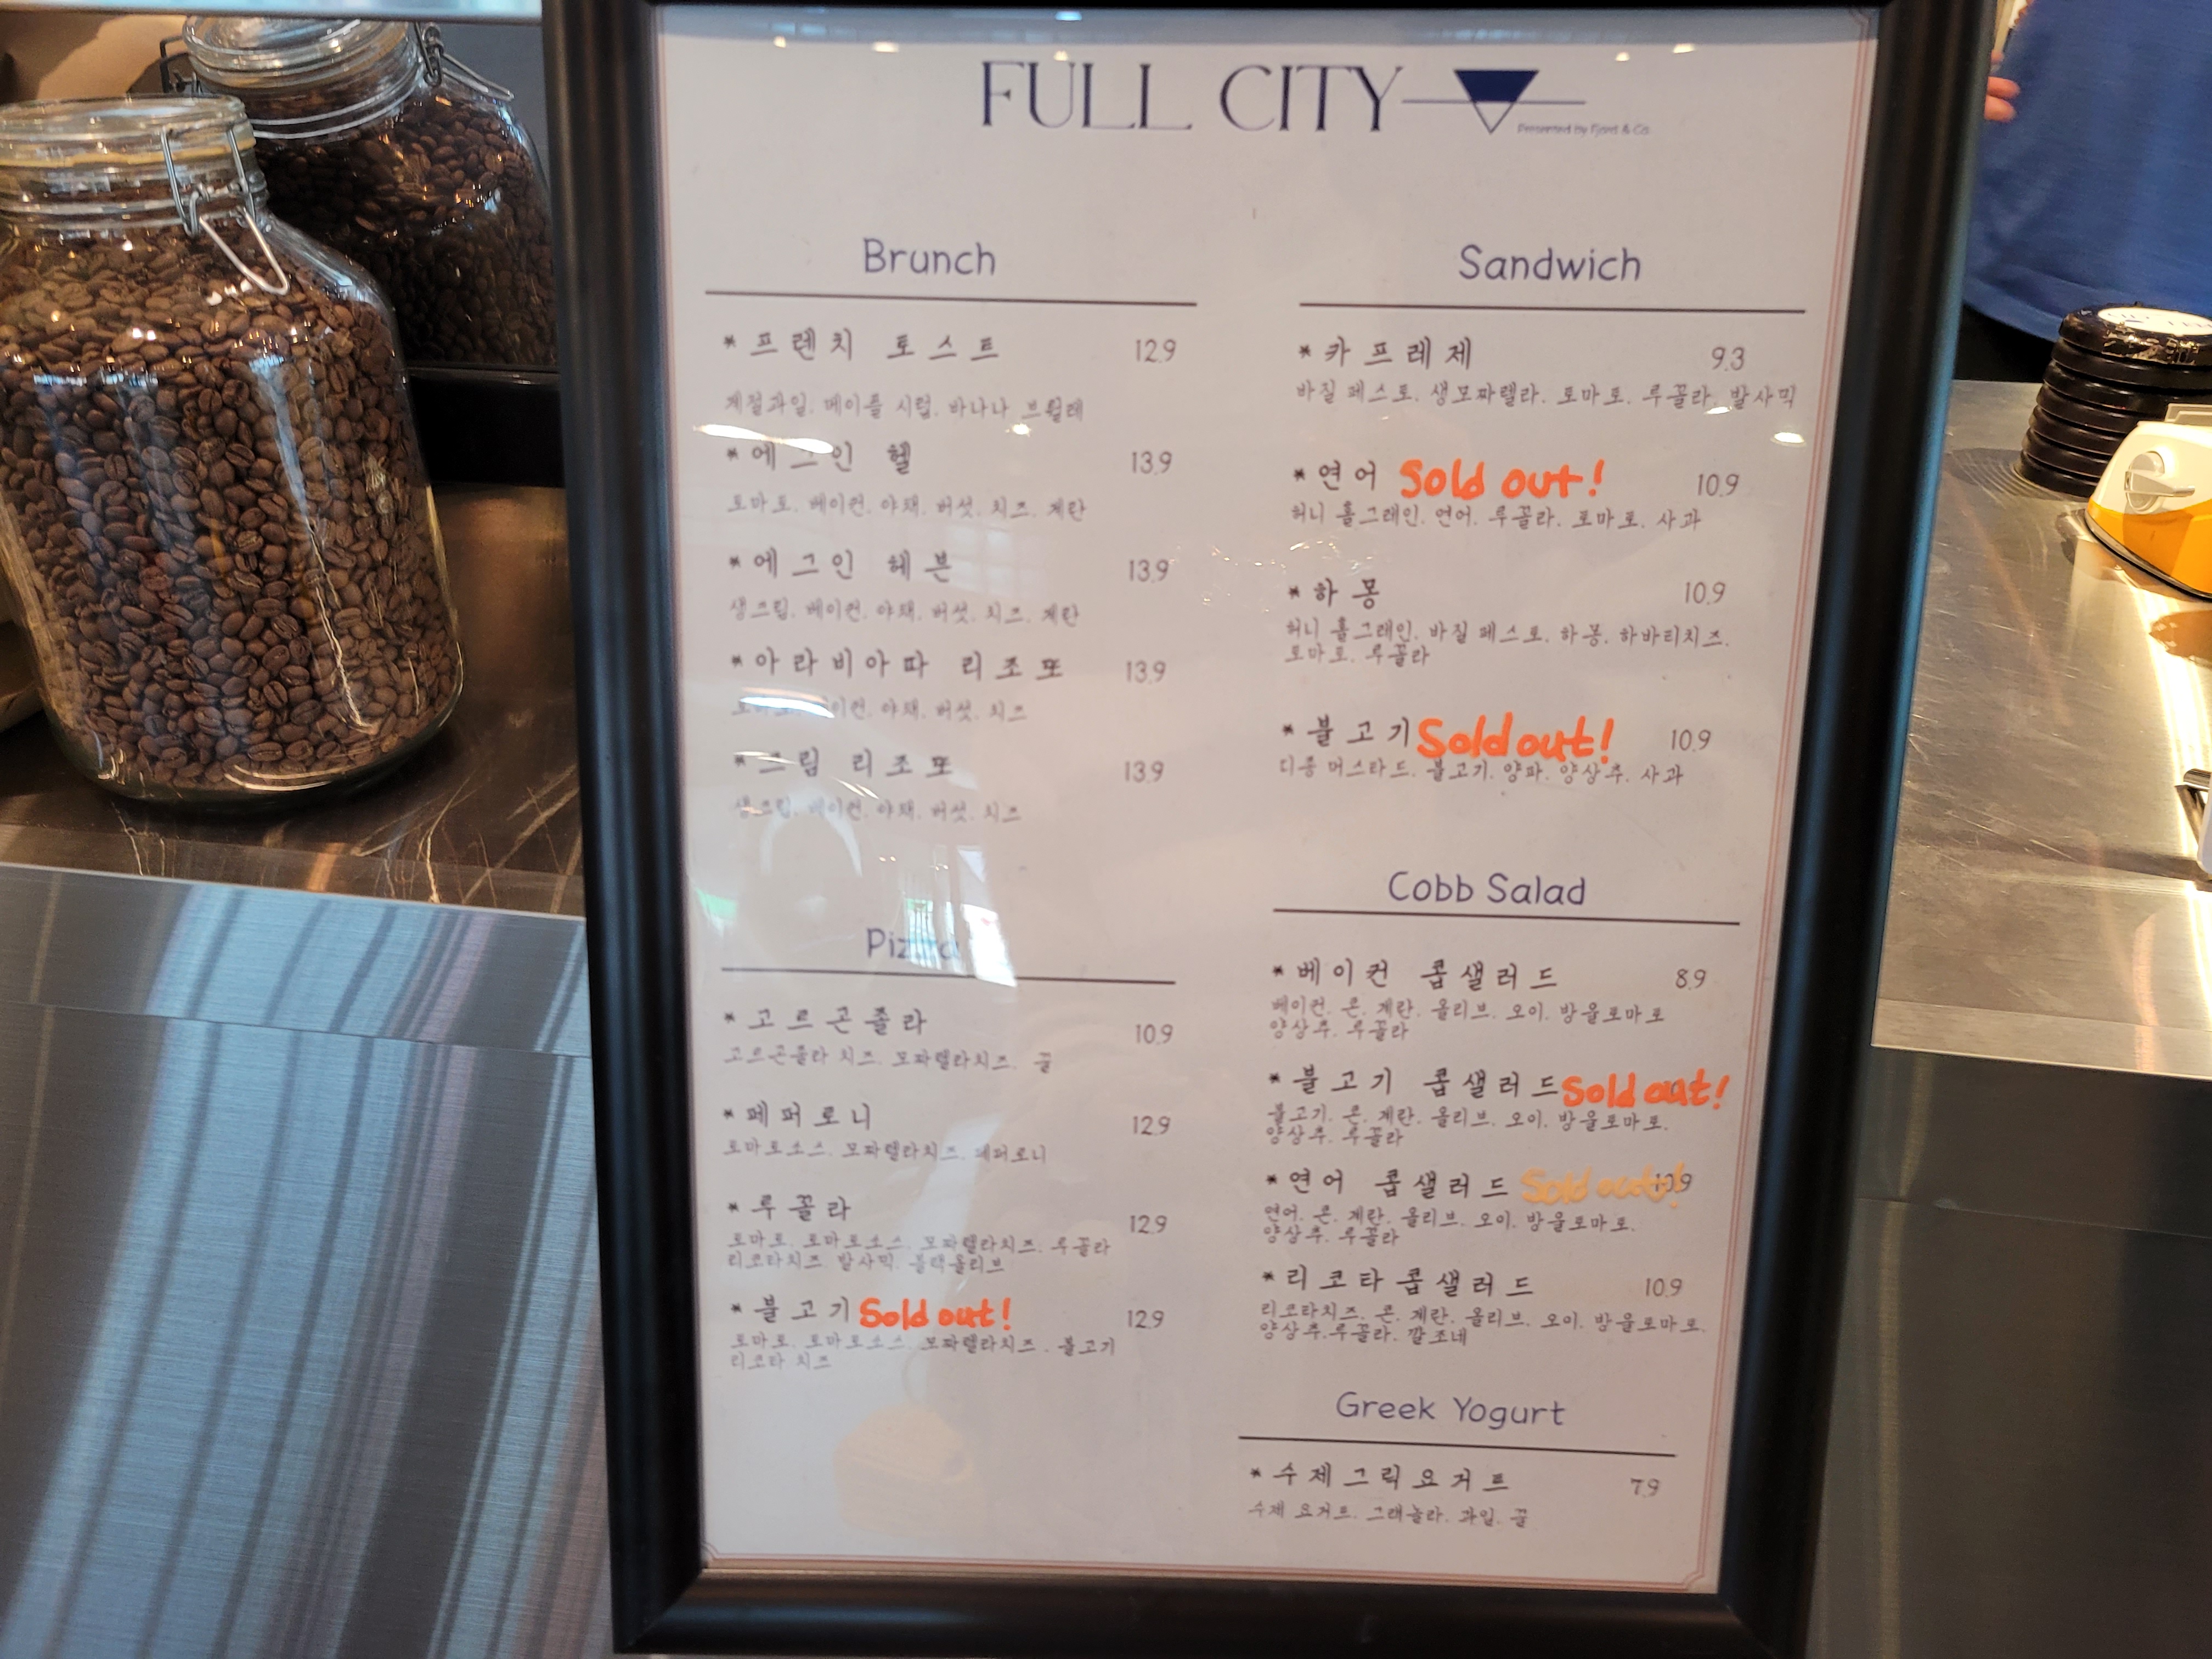 FULL CITY
Presented by Fjord & Co.
Brunch
* 프렌치 토스트 12.9
계절과일, 메이플 시럽, 바나나 브륄레
* 에그인 헬 13.9
토마토, 베이컨, 야채, 버섯, 치즈, 계란
* 에그인 헤븐 13.9
생크림, 베이컨, 야채, 버섯, 치즈, 계란
* 아라비아따 리조또 13.9
토마토, 베이컨, 야채, 버섯, 치즈
* 크림 리조또 13.9
생크림, 베이컨, 야채, 버섯, 치즈
Pizza
* 고르곤졸라 10.9
고르곤졸라 치즈, 모짜렐라치즈, 꿀
* 페퍼로니 12.9
토마토소스, 모짜렐라치즈, 페퍼로니
* 루꼴라 12.9
토마토, 토마토소스, 모짜렐라치즈, 루꼴라
리코타치즈, 발사믹, 블랙올리브
* 불고기 Sold out! 12.9
토마토, 토마토소스, 모짜렐라치즈, 불고기
리코타 치즈
Sandwich
* 카프레제 9.3
바질 페스토, 생모짜렐라, 토마토, 루꼴라, 발사믹
* 연어 Sold out! 10.9
허니 홀그레인, 연어, 루꼴라, 토마토, 사과
* 하몽 10.9
허니 홀그레인, 바질 페스토, 하몽, 하바티치즈,
토마토, 루꼴라
* 불고기 Sold out! 10.9
디종 머스타드, 불고기, 양파, 양상추, 사과
Cobb Salad
* 베이컨 콥샐러드 8.9
베이컨, 콘, 계란, 올리브, 오이, 방울토마토
양상추, 루꼴라
* 불고기 콥샐러드 Sold out!
불고기, 콘, 계란, 올리브, 오이, 방울토마토,
양상추, 루꼴라
* 연어 콥샐러드 Sold out!
연어, 콘, 계란, 올리브, 오이, 방울토마토,
양상추, 루꼴라
* 리코타 콥샐러드 10.9
리코타치즈, 콘, 계란, 올리브, 오이, 방울토마토,
양상추, 루꼴라, 깔조네
Greek Yogurt
* 수제그릭요거트 7.9
수제 요거트, 그래놀라, 과일, 꿀